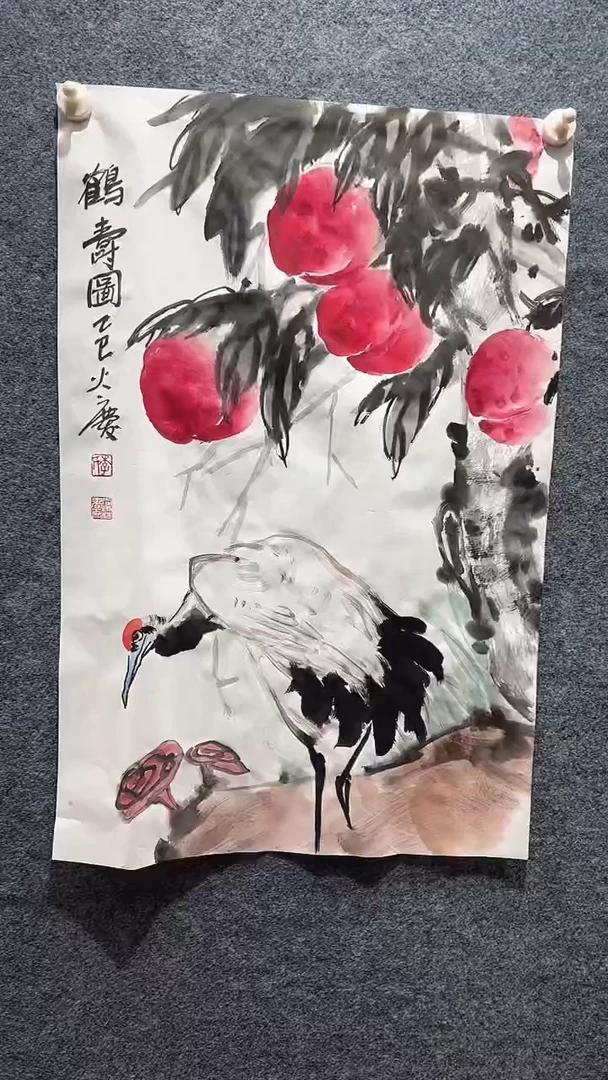 鶴壽圖乙巳火慶